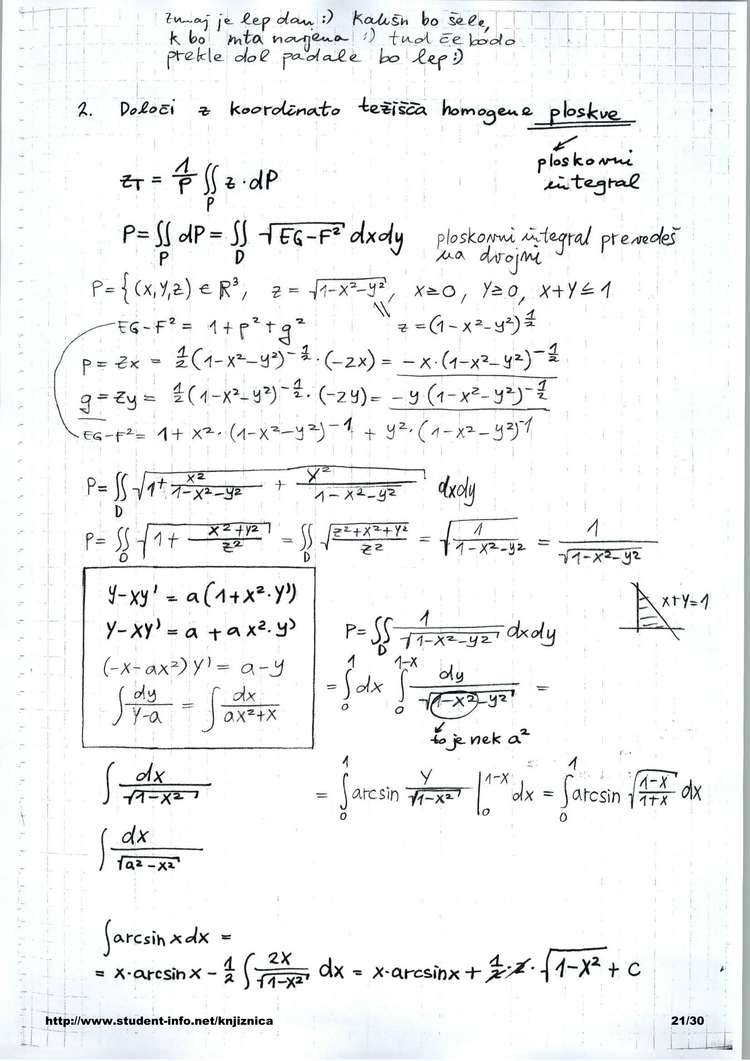 zunaj je lep dan :) Kakšn bo šele,
k bo mta narjena :) tud če bodo
prekle dol padale bo lep :)
2. Določi z koordinato težišča homogene ploskve
ploskovni
integral
z_T = 1/P ∬_P z · dP
P = ∬_P dP = ∬_D √(EG-F²) dxdy
ploskovni integral prevedeš
na dvojni
P = {(x,y,z) ∈ R³, z = √(1-x²-y²), x≥0, y≥0, x+y≤1
EG-F² = 1+p²+g²
z = (1-x²-y²)^(1/2)
p = zx = 1/2 (1-x²-y²)^(-1/2) · (-2x) = -x·(1-x²-y²)^(-1/2)
g = zy = 1/2 (1-x²-y²)^(-1/2) · (-2y) = -y (1-x²-y²)^(-1/2)
EG-F² = 1 + x²·(1-x²-y²)^(-1) + y²·(1-x²-y²)^(-1)
P = ∬_D √(1 + x²/(1-x²-y²) + y²/(1-x²-y²)) dxdy
P = ∬_D √(1 + (x²+y²)/z²) = ∬_D √((z²+x²+y²)/z²) = √(1/(1-x²-y²)) = 1/√(1-x²-y²)
y-xy' = a(1+x²·y')
y-xy' = a + ax²·y'
(-x-ax²)y' = a-y
∫ dy/(y-a) = ∫ dx/(ax²+x)
x+y=1
P = ∬_D 1/√(1-x²-y²) dxdy
= ∫_0^1 dx ∫_0^(1-x) dy/√(1-x²-y²) =
to je nek a²
∫ dx/√(1-x²)
= ∫_0^1 arcsin y/√(1-x²) |_0^(1-x) dx = ∫_0^1 arcsin √((1-x)/(1+x)) dx
∫ dx/√(a²-x²)
∫arcsin x dx =
= x·arcsin x - 1/2 ∫ 2x/√(1-x²) dx = x·arcsin x + 1/2·2·√(1-x²) + C
http://www.student-info.net/knjiznica
21/30